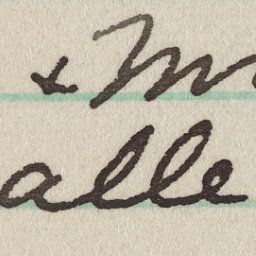 & M
alle